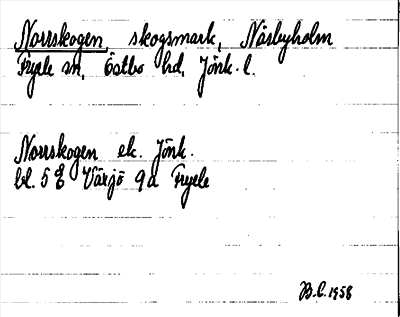 Norrskogen, skogsmark, Näsbyholm
Fryele sn, Östbo hd, Jönk. l.
Norrskogen ek. Jönk.
bl. 5 E Värjö 9 a Fryele
B.C. 1958